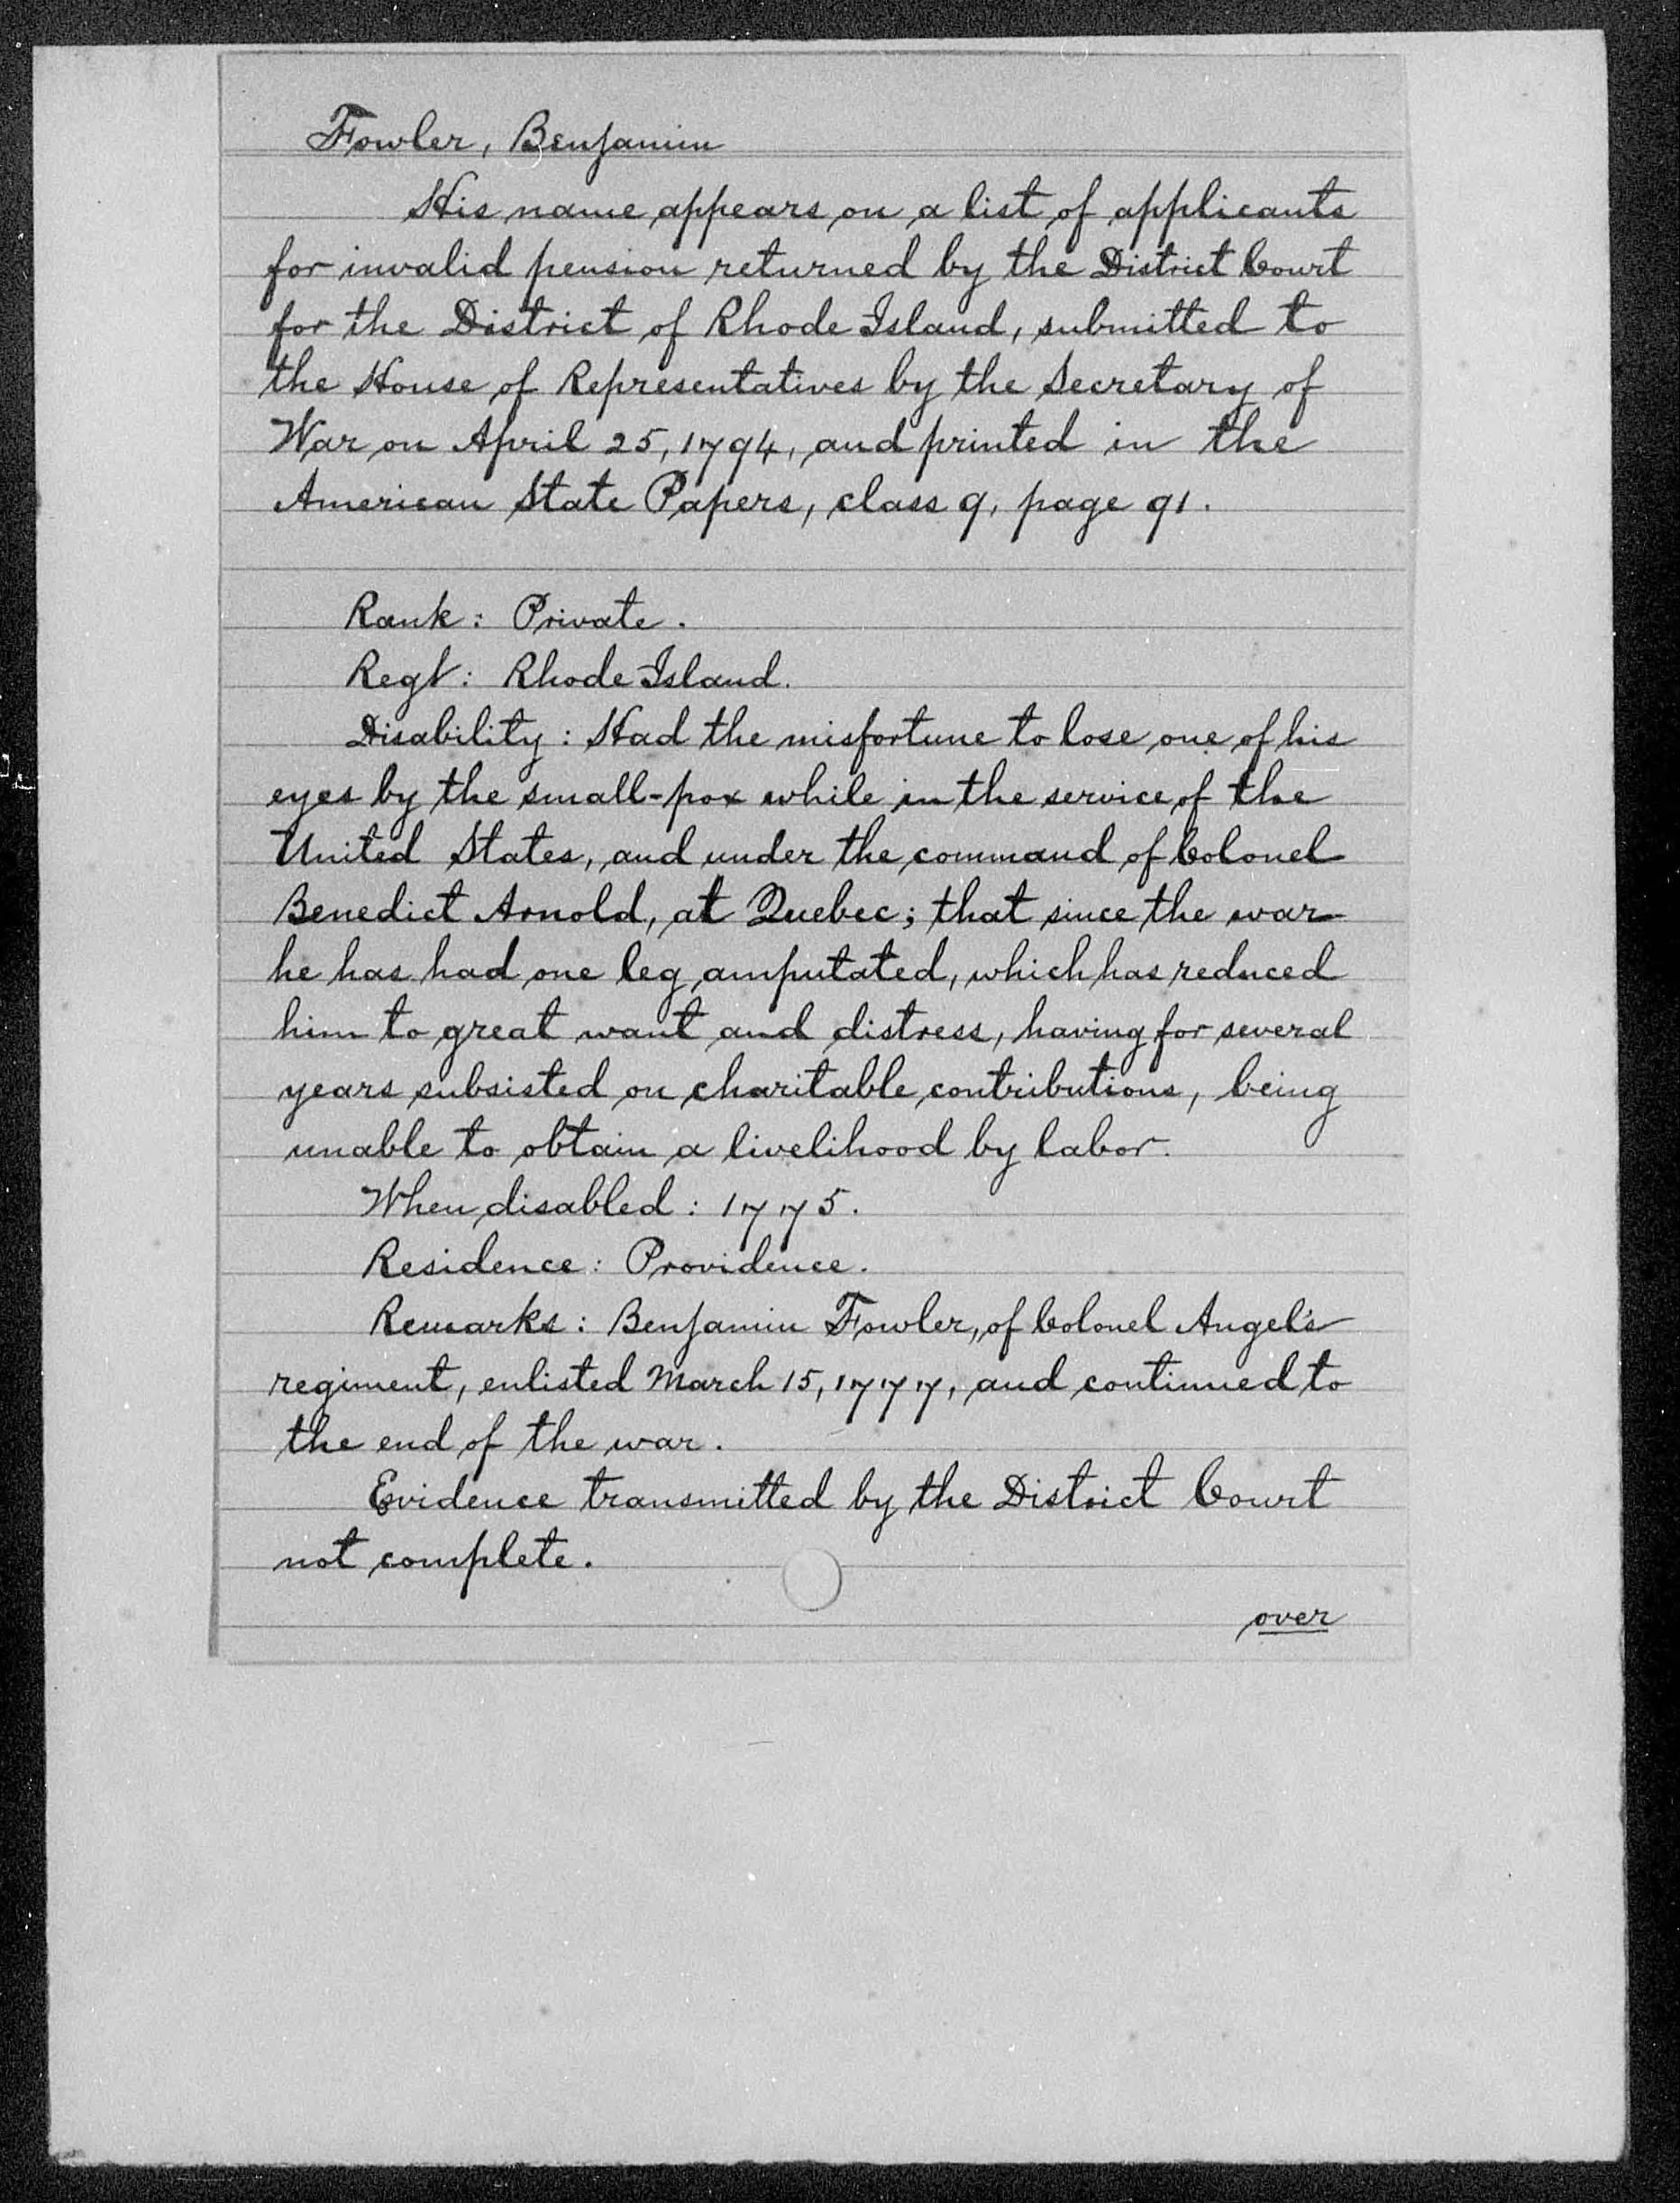 Fowler, Benjamin
His name appears on a list of applicants
for invalid pension returned by the District Court
for the District of Rhode Island, submitted to
the House of Representatives by the Secretary of
War on April 25, 1794, and printed in the
American State Papers, class 9, page 91.
Rank: Private.
Regt: Rhode Island.
Disability: Had the misfortune to lose one of his
eyes by the small-pox while in the service of the
United States, and under the command of Colonel
Benedict Arnold, at Quebec; that since the war
he has had one leg amputated, which has reduced
him to great want and distress, having for several
years subsisted on charitable contributions, being
unable to obtain a livelihood by labor.
When disabled: 1775.
Residence: Providence.
Remarks: Benjamin Fowler, of Colonel Angel's
regiment, enlisted March 15, 1777, and continued to
the end of the war.
Evidence transmitted by the District Court
not complete.
over